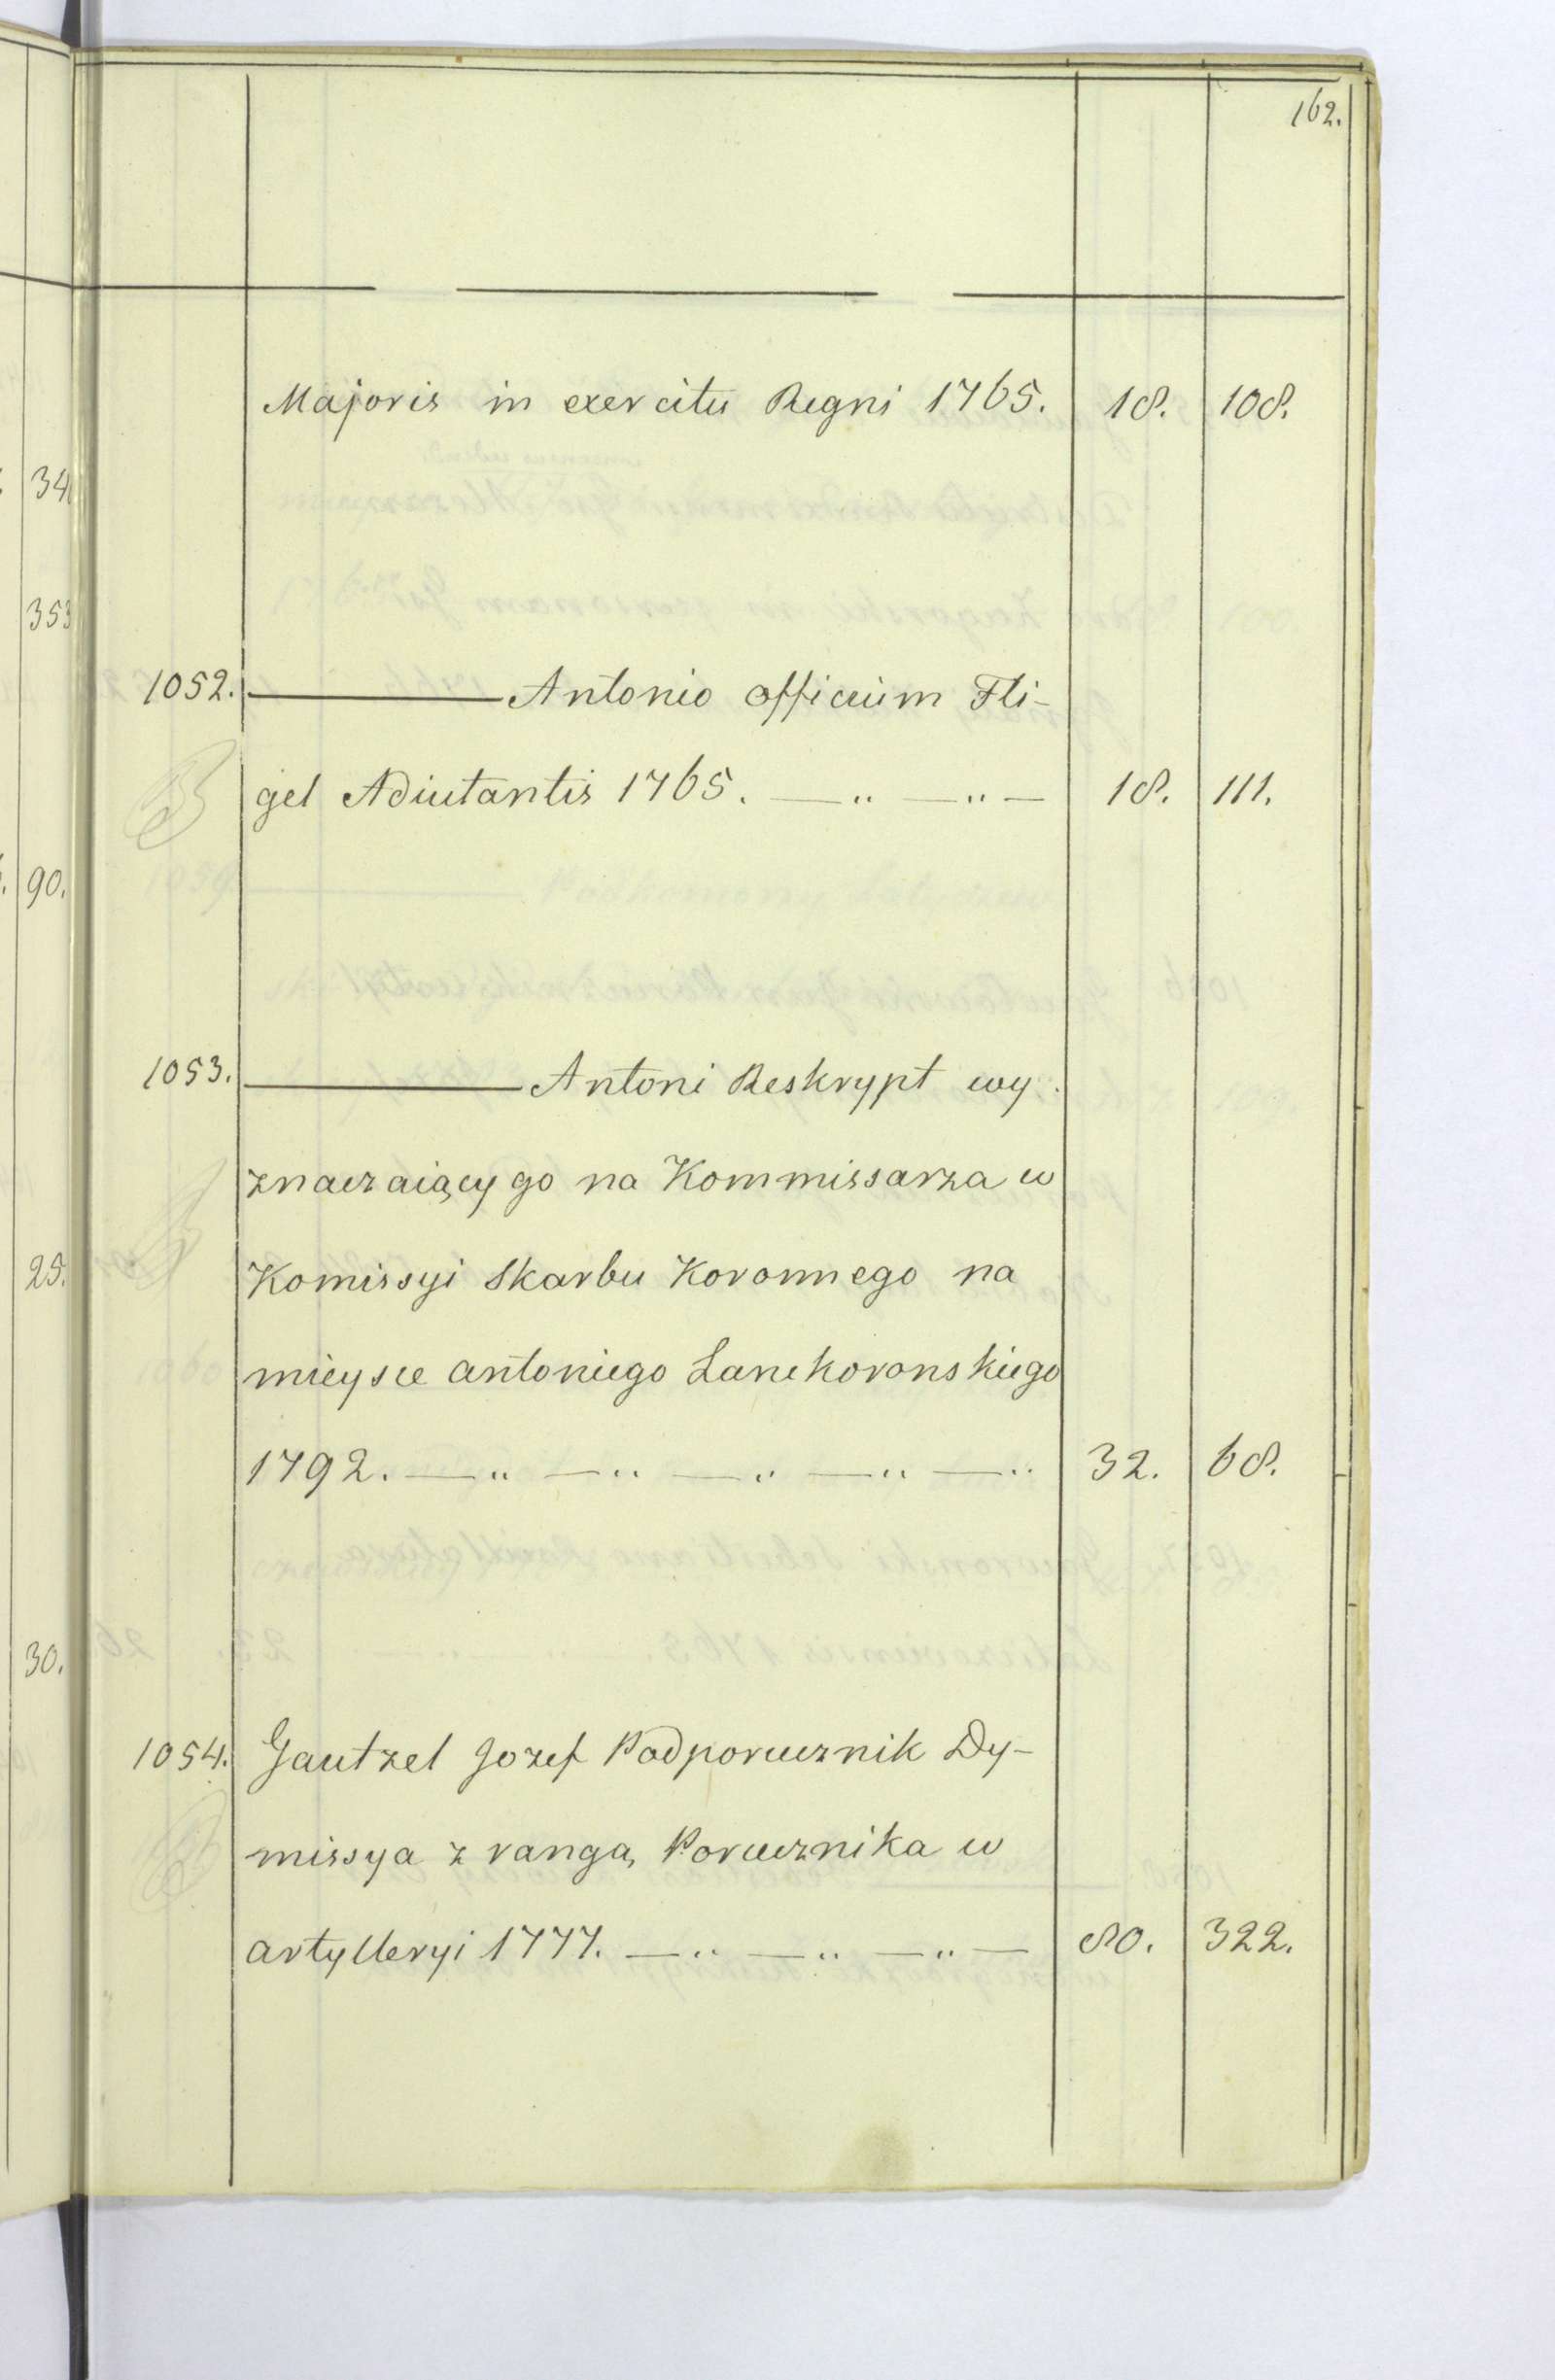 162.
Majoris in exercitu Regni 1765. 18. 108.
1052. ——— Antonio officium Fli-
gel Adiutantis 1765. — " — " — 18. 111.
1053. ——— Antoni Reskrypt wy
znaczaiący go na Kommissarza w
Komissyi Skarbu Koronnego na
mieysce antoniego Lanckoronskiego
1792. — " — " — " — " — " 32. 68.
1054. Gautzel Jozef Podporucznik Dy-
missya z rangą Porucznika w
artylleryi 1777. — " — " — " — 80. 322.
34
353
90.
25.
30.